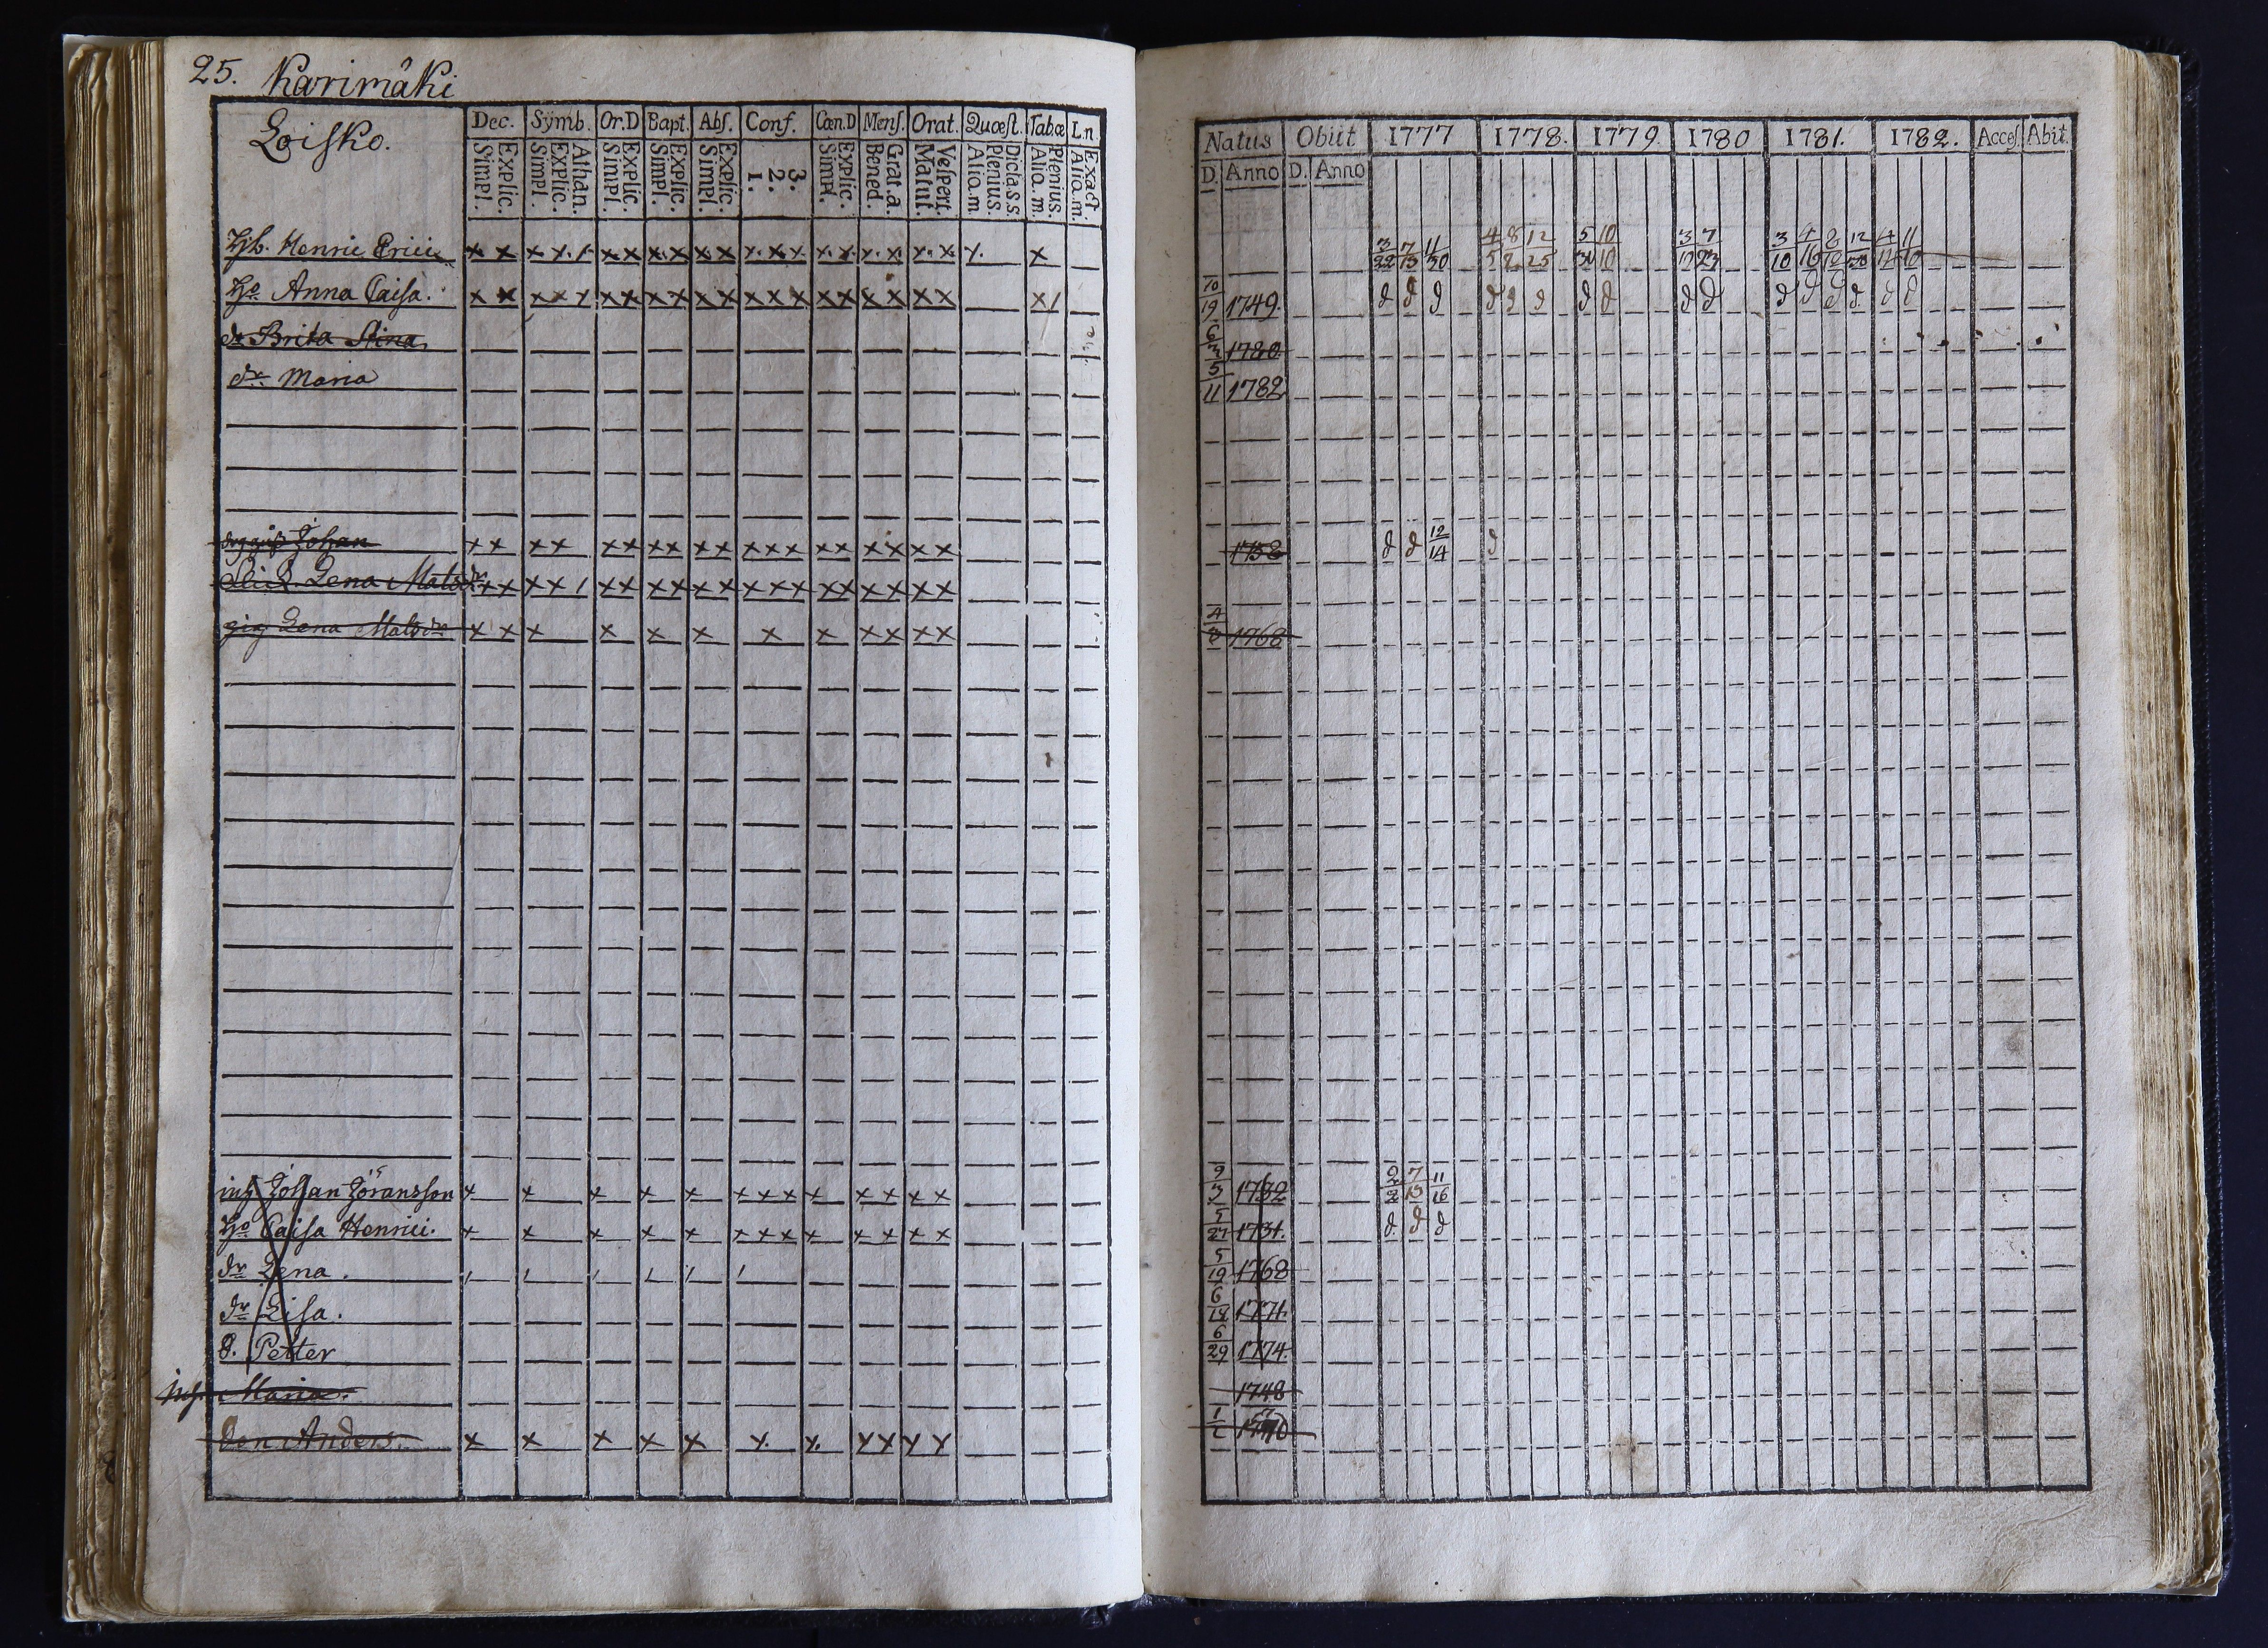 25. Karimäki
Loisko.
Dec. Sÿmb. Or.D Bapt. Abſ. Conf. Cœn.D Menſ. Orat. Quæſt. Tabæ L.n
Explic. Simpl.
Athan. Explic. Simpl.
Explic. Simpl.
Explic. Simpl.
Explic. Simpl.
3. 2. 1.
Explic. Simpl.
Grat.a. Bened.
Veſpert. Matut.
Dicta.s.s. Plenius. Alia.m.
Plenius. Alia.m.
Exact. Alia.m.
Hb. Henric Erici x x x x x x x x x x x x x x x x x x x x x
Ho Anna Caisa. x x x x x x x x x x x x x x x x x x x x x
dr Brita Stina
dr Maria
Johan x x x x x x x x x x x x x x x x x x x
Lena Matsdr x x x x x x x x x x x x x x x x x x x
Lena Matsdr x x x x x x x x x x x x
inh Johan Jöransson x x x x x x x x x x x x x
Ho Caisa Henrici. x x x x x x x x x x x x x
dr Lena.
dr Lisa.
S. Petter
inh. Maria.
Anders. x x x x x x x x x x x
Natus Obiit 1777 1778. 1779. 1780 1781. 1782. Acceſ. Abit.
D. Anno D. Anno
3/22 7/15 11/30 4/5 8/2 12/25 5/31 10/10 3/19 7/23 3/10 4/16 8/12 12/20 4/14 11/10
10/19 1749. d d d d d d d d d d d d d d d d
1780
5/11 1782
1758 d d 12/14 d
1768
9/3 1732 2/2 7/15 11/16
5/27 1731. d. d d
5/19 1768
6/18 1771.
6/29 1774.
1748